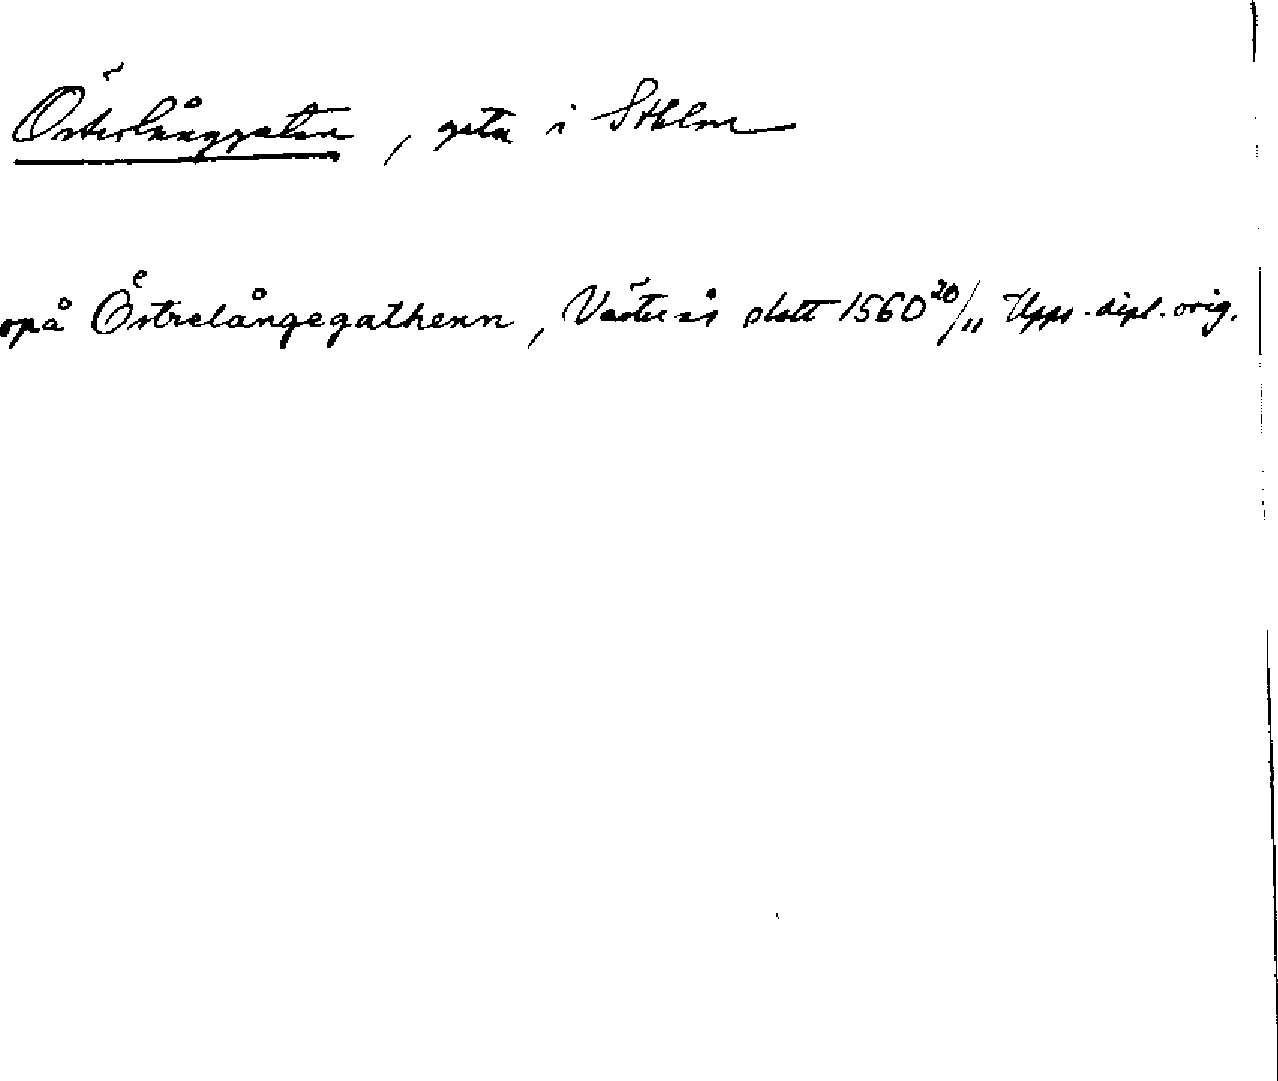 Österlånggatan, gata i Sthlm
opå Oͤstrelångegathenn, Västerås slott 1560 20/11 Upps. dipl. orig.